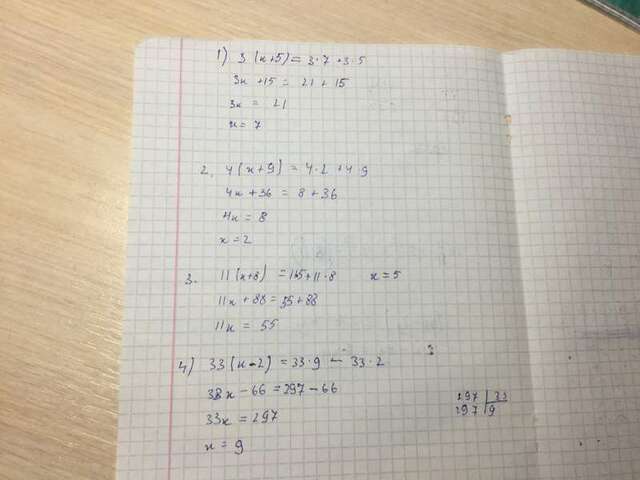 1) 3 (x+5) = 3·7 + 3·5
3x + 15 = 21 + 15
3x = 21
x = 7
2. 4(x+9) = 4·2 + 4·9
4x + 36 = 8 + 36
4x = 8
x = 2
3. 11(x+8) = 11·5+11·8 x = 5
11x + 88 = 55 + 88
11x = 55
4) 33(x-2) = 33·9 - 33·2
33x - 66 = 297 - 66
33x = 297
x = 9
297 | 33
297 | 9